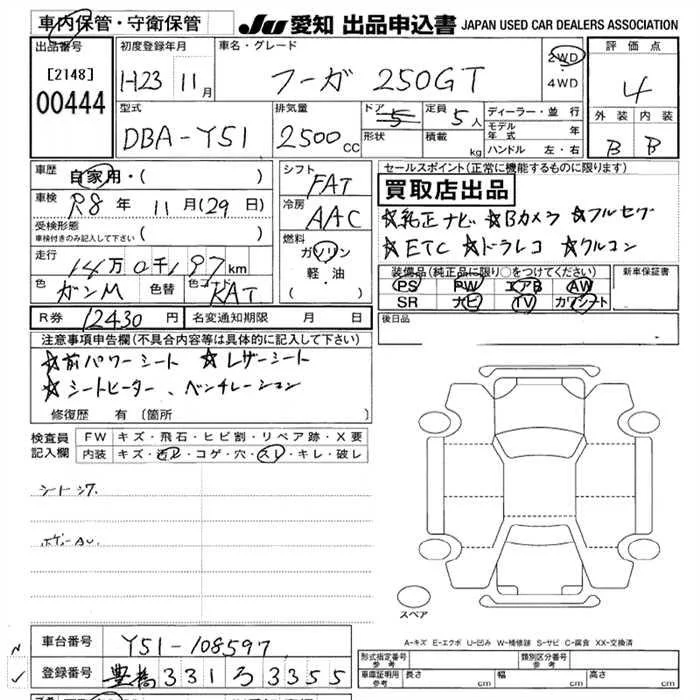 車内保管・守衛保管 JU 愛知 出品申込書 JAPAN USED CAR DEALERS ASSOCIATION
出品番号 初度登録年月 車名・グレード 評価点
[2148] H23 11月 フーガ 250GT 2WD・4WD 4
00444 外装 内装
型式 排気量 ドア 定員 ディーラー・並行
DBA-Y51 2500cc 5 5人 モデル年式 年 B B
形状 積載 kg ハンドル 左・右
車歴 自家用・( ) シフト FAT セールスポイント(正常に機能するものに限ります)
買取店出品
車検 R8年 11月(29日) 冷房 AAC ☆純正ナビ ☆Bカメラ ☆フルセグ
受検形態 車検付きのみ記入して下さい ( ) 燃料 ☆ETC ☆ドラレコ ☆クルコン
走行 14万0千197km ガソリン 軽・油
装備品(純正品に限り○をつけてください) 新車保証書
色 ガンM 色替 色コード KAT PS PW エアB AW
SR ナビ TV カワシート
R券 12430円 名変通知期限 月 日 後日品
注意事項申告欄(不具合内容等は具体的に記入して下さい)
☆前パワーシート ☆レザーシート
☆シートヒーター、ベンチレーション
修復歴 有 (箇所 )
検査員記入欄 FW キズ・飛石・ヒビ割・リペア跡・X要
内装 キズ・汚レ・コゲ・穴・スレ・キレ・破レ
シートシワ
ボデーAU
スペア
A-キズ E-エクボ U-凹み W-補修跡 S-サビ C-腐食 XX-交換済
車台番号 Y51-108597
登録番号 豊橋 331 ろ 3355
形式指定番号 参考 類別区分番号 参考
車庫証明用 参考 長さ cm 幅 cm 高さ cm